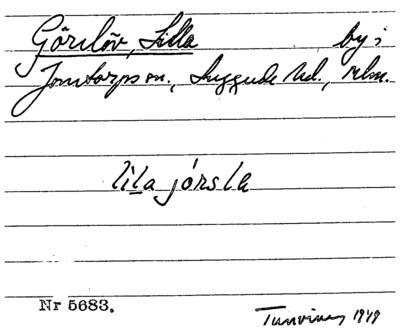 Görslöv, Lilla by;
Jonstorps sn., Luggude hd., Mlm.
lila jórsla
Nr 5683.
1949